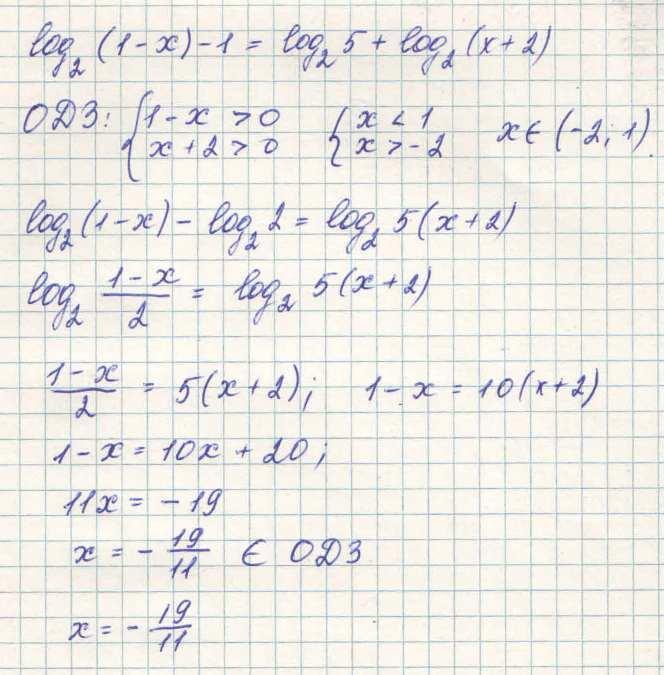 log₂(1-x)-1 = log₂5 + log₂(x+2)
ОДЗ: { 1-x > 0 { x < 1 x∈(-2; 1).
x+2 > 0 x > -2
log₂(1-x) - log₂2 = log₂5(x+2)
log₂ (1-x)/2 = log₂ 5(x+2)
(1-x)/2 = 5(x+2); 1-x = 10(x+2)
1-x = 10x + 20;
11x = -19
x = - 19/11 ∈ ОДЗ
x = - 19/11